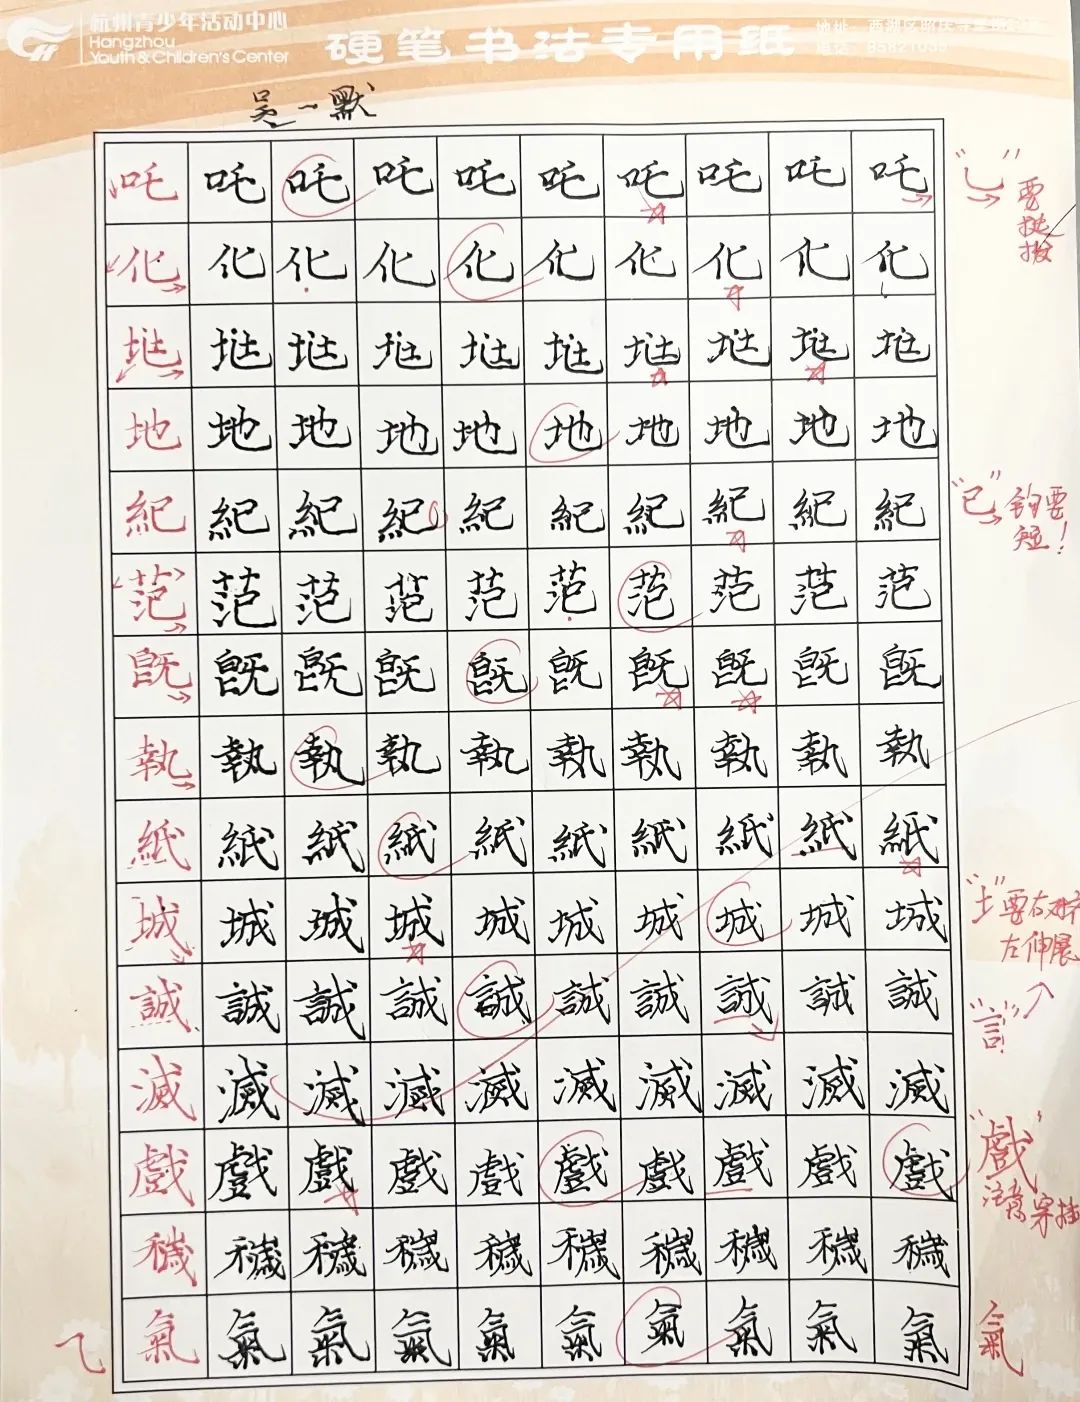 杭州青少年活动中心
Hangzhou
Youth & Children's Center
硬笔书法专用纸
吴一默
吒吒吒吒吒吒吒吒吒吒
"乚"要挑拨
化化化化化化化化化化
地地地地地地地地地地
紀紀紀紀紀紀紀紀紀紀
"已"钩要短!
范范范范范范范范范范
執執執執執執執執執執
紙紙紙紙紙紙紙紙紙紙
城城城城城城城城城城
"土"要右对齐
左伸展
誠誠誠誠誠誠誠誠誠誠
"言"
滅滅滅滅滅滅滅滅滅滅
戲戲戲戲戲戲戲戲戲戲
"戲"
注意穿插
穢穢穢穢穢穢穢穢穢穢
乁氣氣氣氣氣氣氣氣氣氣氣